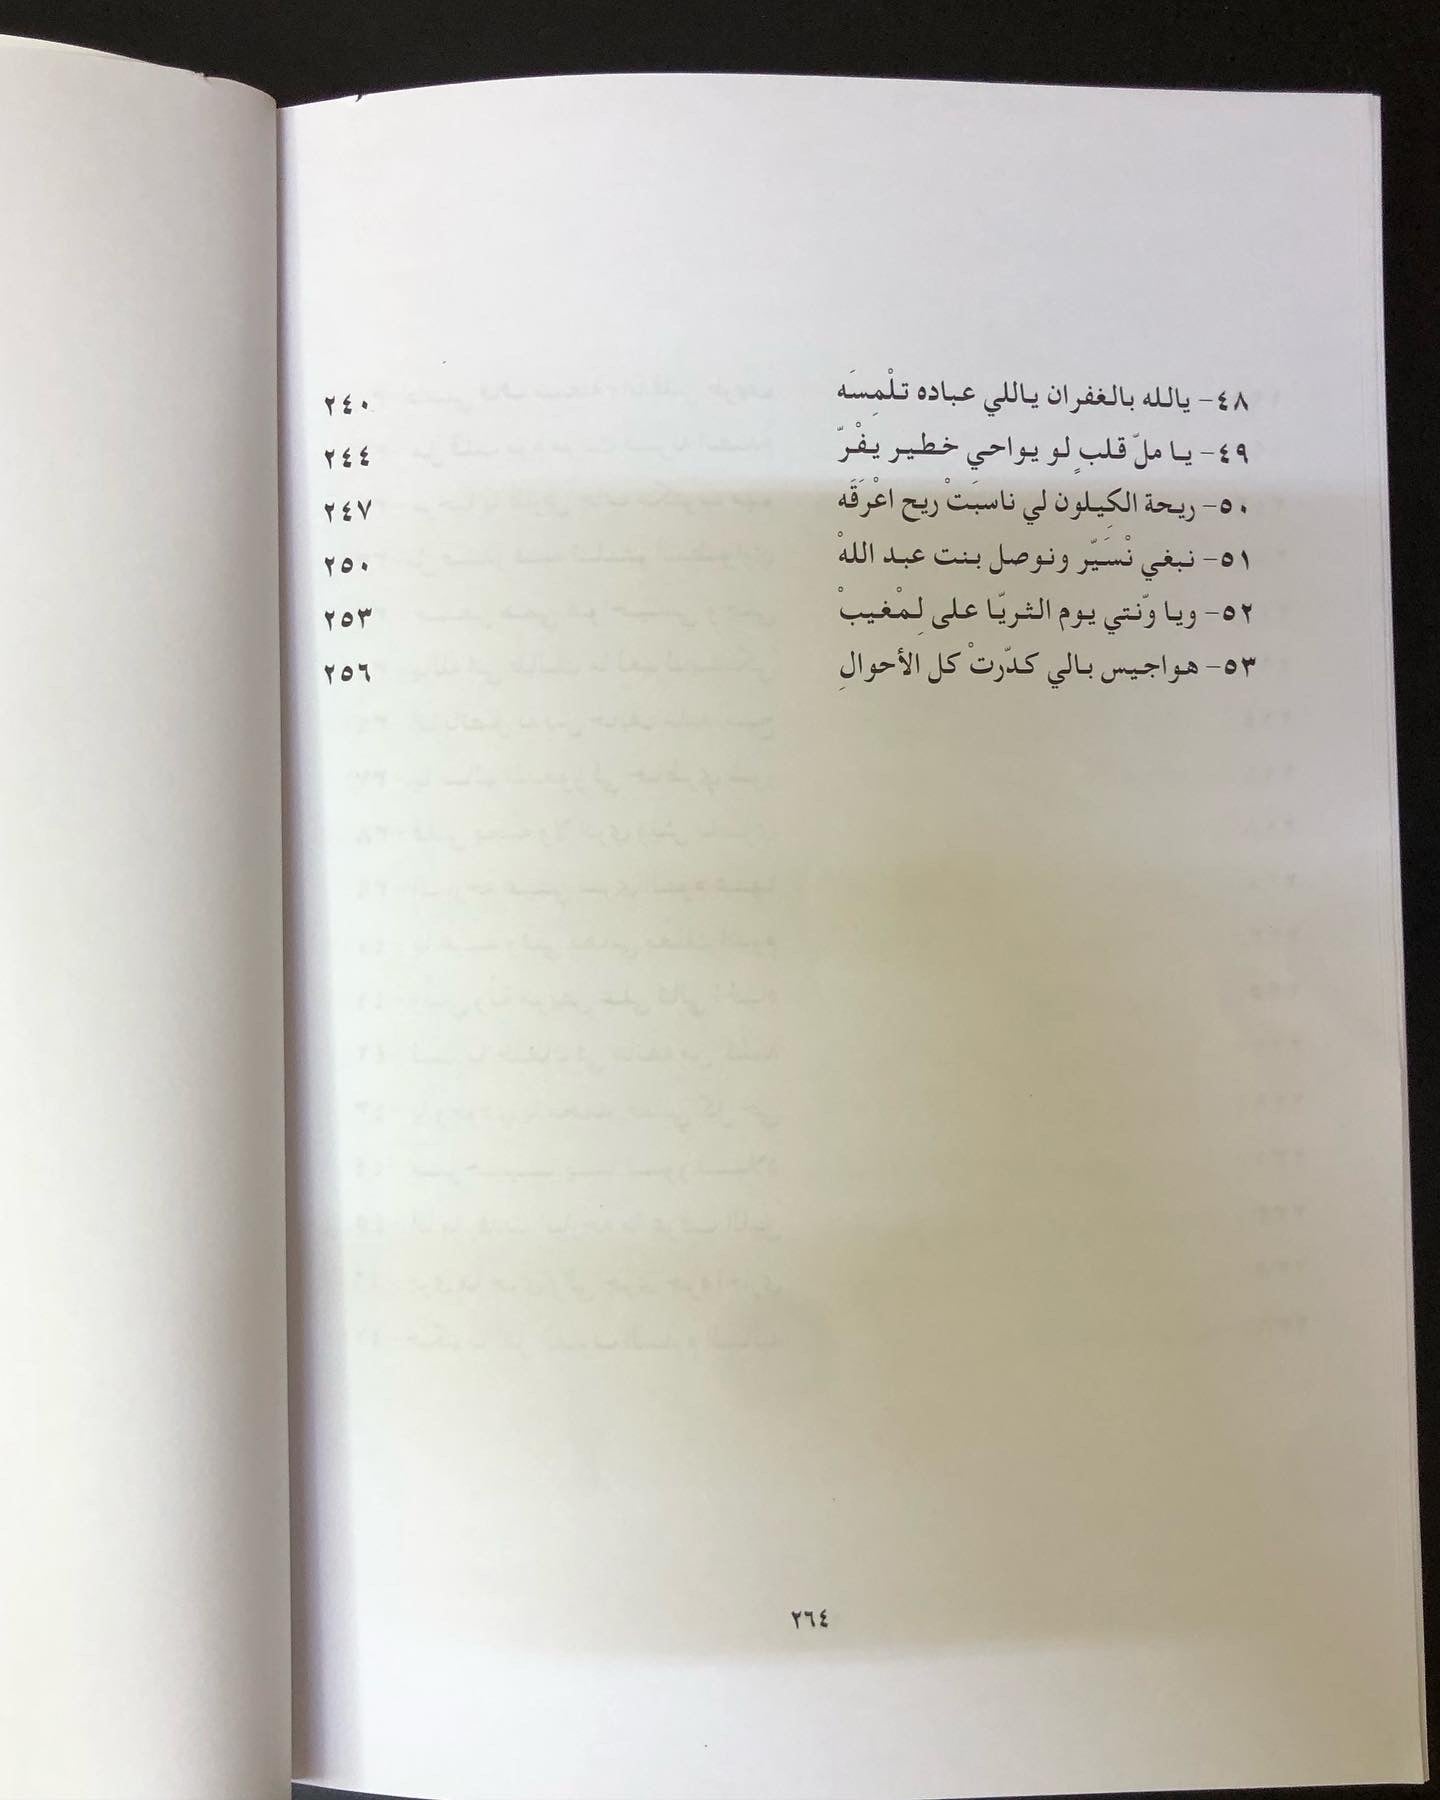 ٤٨- يالله بالغفران ياللي عباده تلْمِسَه ٢٤٠
٤٩- يا ملّ قلبٍ لو يواحي خطير يفْرّ ٢٤٤
٥٠- ريحة الكِيلون لي ناسبَتْ ريح اعْرَقَه ٢٤٧
٥١- نبغي نْسَيّر ونوصل بنت عبد اللهْ ٢٥٠
٥٢- ويا وّنتي يوم الثريّا على لِمْغيبْ ٢٥٣
٥٣- هواجيس بالي كدّرتْ كل الأحوالِ ٢٥٦
٢٦٤